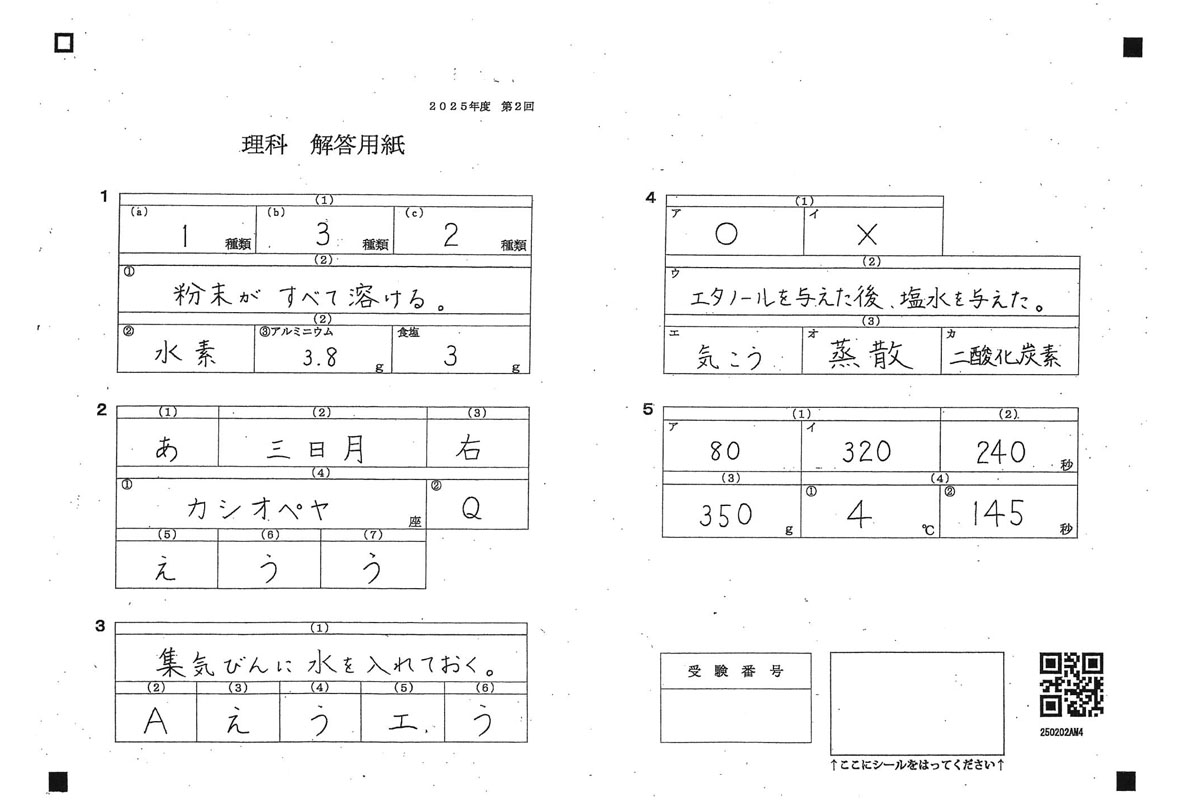 2025年度 第2回
理科 解答用紙
1
(1)
(a) 1 種類 (b) 3 種類 (c) 2 種類
(2)
① 粉末がすべて溶ける。
(2)
② 水素 ③アルミニウム 3.8 g 食塩 3 g
2
(1) (2) (3)
あ 三日月 右
(4)
① カシオペヤ 座 ② Q
(5) (6) (7)
え う う
3
(1)
集気びんに水を入れておく。
(2) (3) (4) (5) (6)
A え う エ う
4
(1)
ア ○ イ ×
(2)
ウ エタノールを与えた後、塩水を与えた。
(3)
エ 気こう オ 蒸散 カ 二酸化炭素
5
(1) (2)
ア 80 イ 320 240 秒
(3) (4)
350 g ① 4 ℃ ② 145 秒
受験番号
↑ここにシールをはってください↑
250202AM4